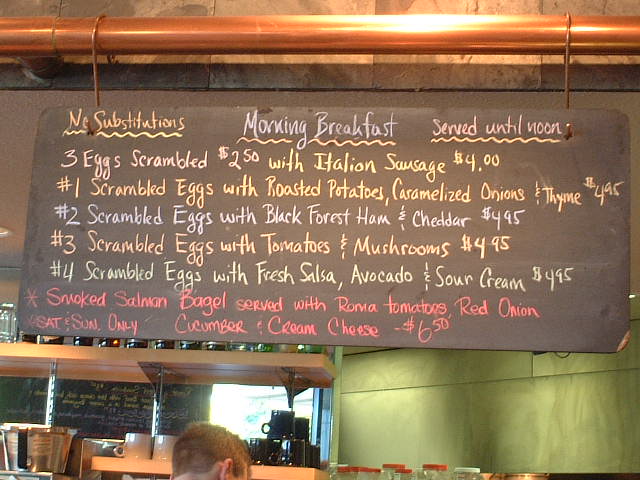 No Substitutions Morning Breakfast Served until noon
3 Eggs Scrambled $2.50 with Italian Sausage $4.00
#1 Scrambled Eggs with Roasted Potatoes, Caramelized Onions & Thyme $4.95
#2 Scrambled Eggs with Black Forest Ham & Cheddar $4.95
#3 Scrambled Eggs with Tomatoes & Mushrooms $4.95
#4 Scrambled Eggs with Fresh Salsa, Avocado & Sour Cream $4.95
* Smoked Salmon Bagel served with Roma tomatoes, Red Onion
*SAT & SUN. ONLY Cucumber & Cream Cheese - $6.50